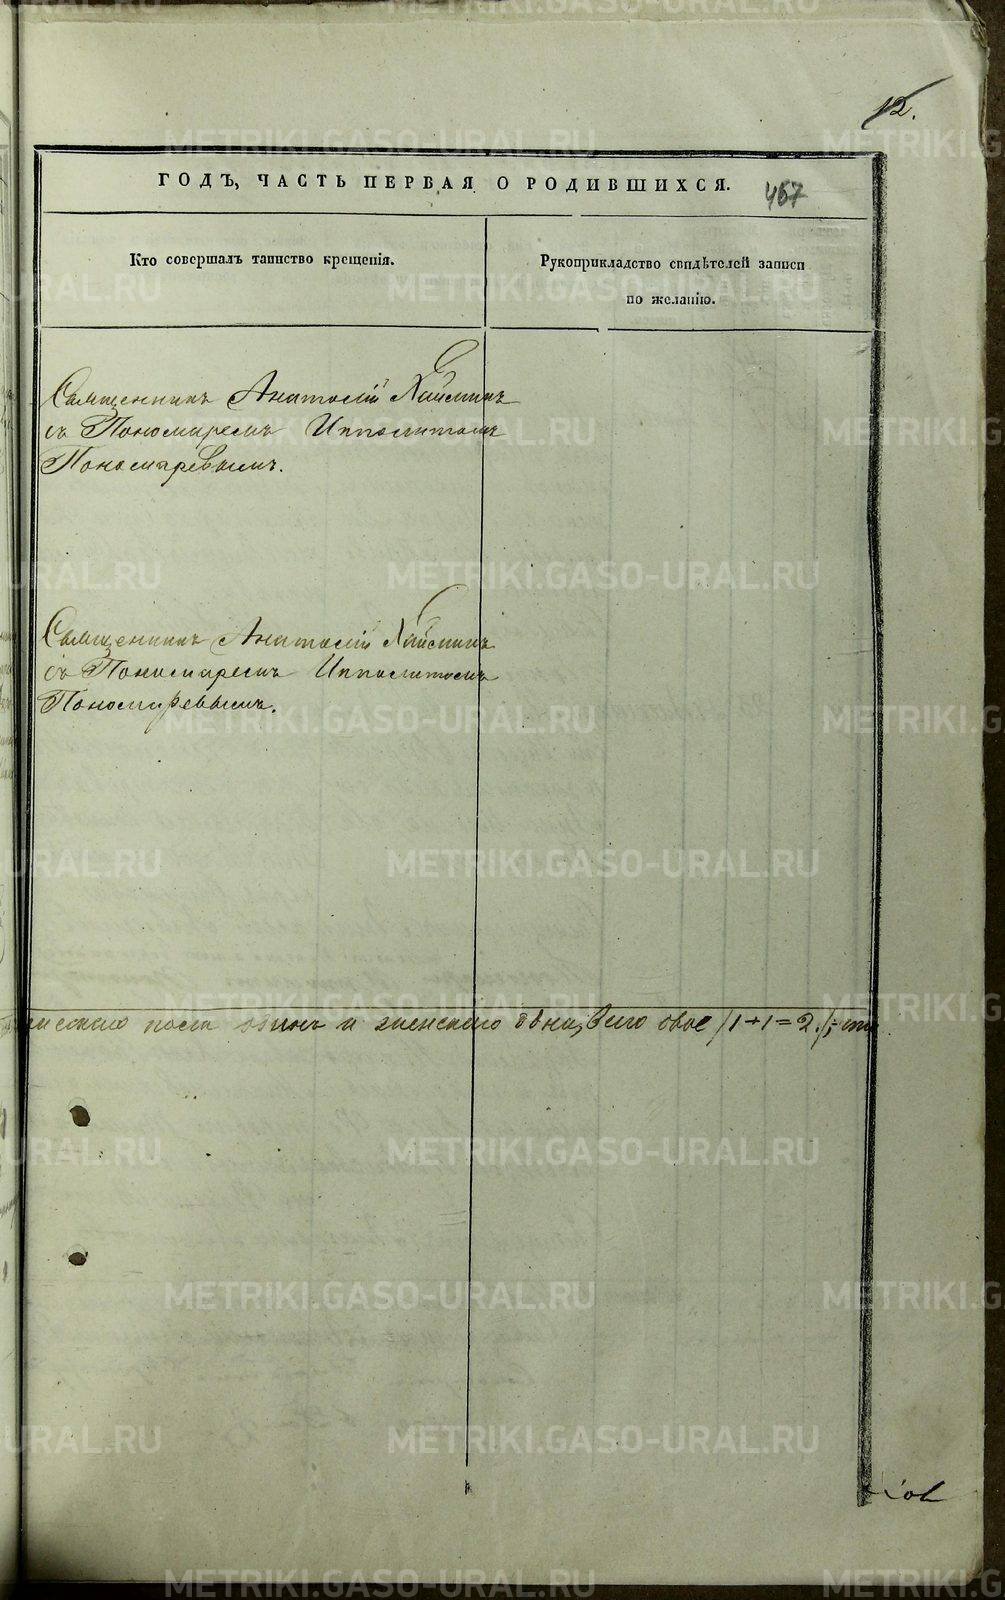 12.
ГОДЪ, ЧАСТЬ ПЕРВАЯ О РОДИВШИХСЯ.
467
Кто совершалъ таинство крещенія.
Рукоприкладство свидѣтелей записи
по желанію.
Священникъ Анатолій
съ Пономаремъ Ипполитомъ
Пономаревымъ.
Священникъ Анатолій
съ Пономаремъ Ипполитомъ
Пономаревымъ.
пола одинъ и женскаго одна, всего двое /1+1=2./,
METRIKI.GASO-URAL.RU